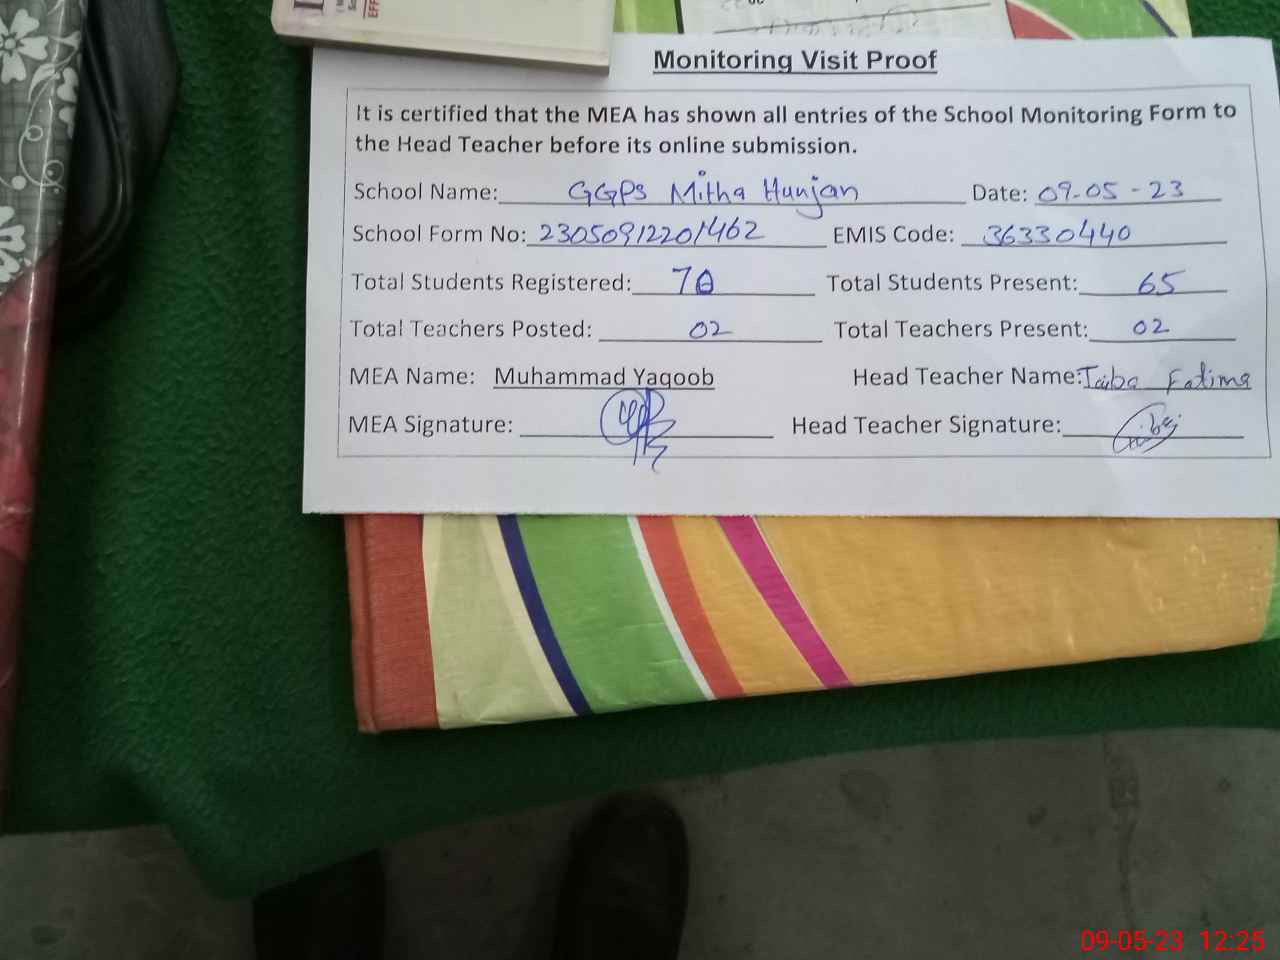 EFF
Monitoring Visit Proof
It is certified that the MEA has shown all entries of the School Monitoring Form to
the Head Teacher before its online submission.
School Name: GGPS Mitha Hunjan Date: 09-05-23
School Form No: 23050912201462 EMIS Code: 36330440
Total Students Registered: 70 Total Students Present: 65
Total Teachers Posted: 02 Total Teachers Present: 02
MEA Name: Muhammad Yaqoob Head Teacher Name: Taiba Fatima
MEA Signature: Head Teacher Signature:
09-05-23 12:25